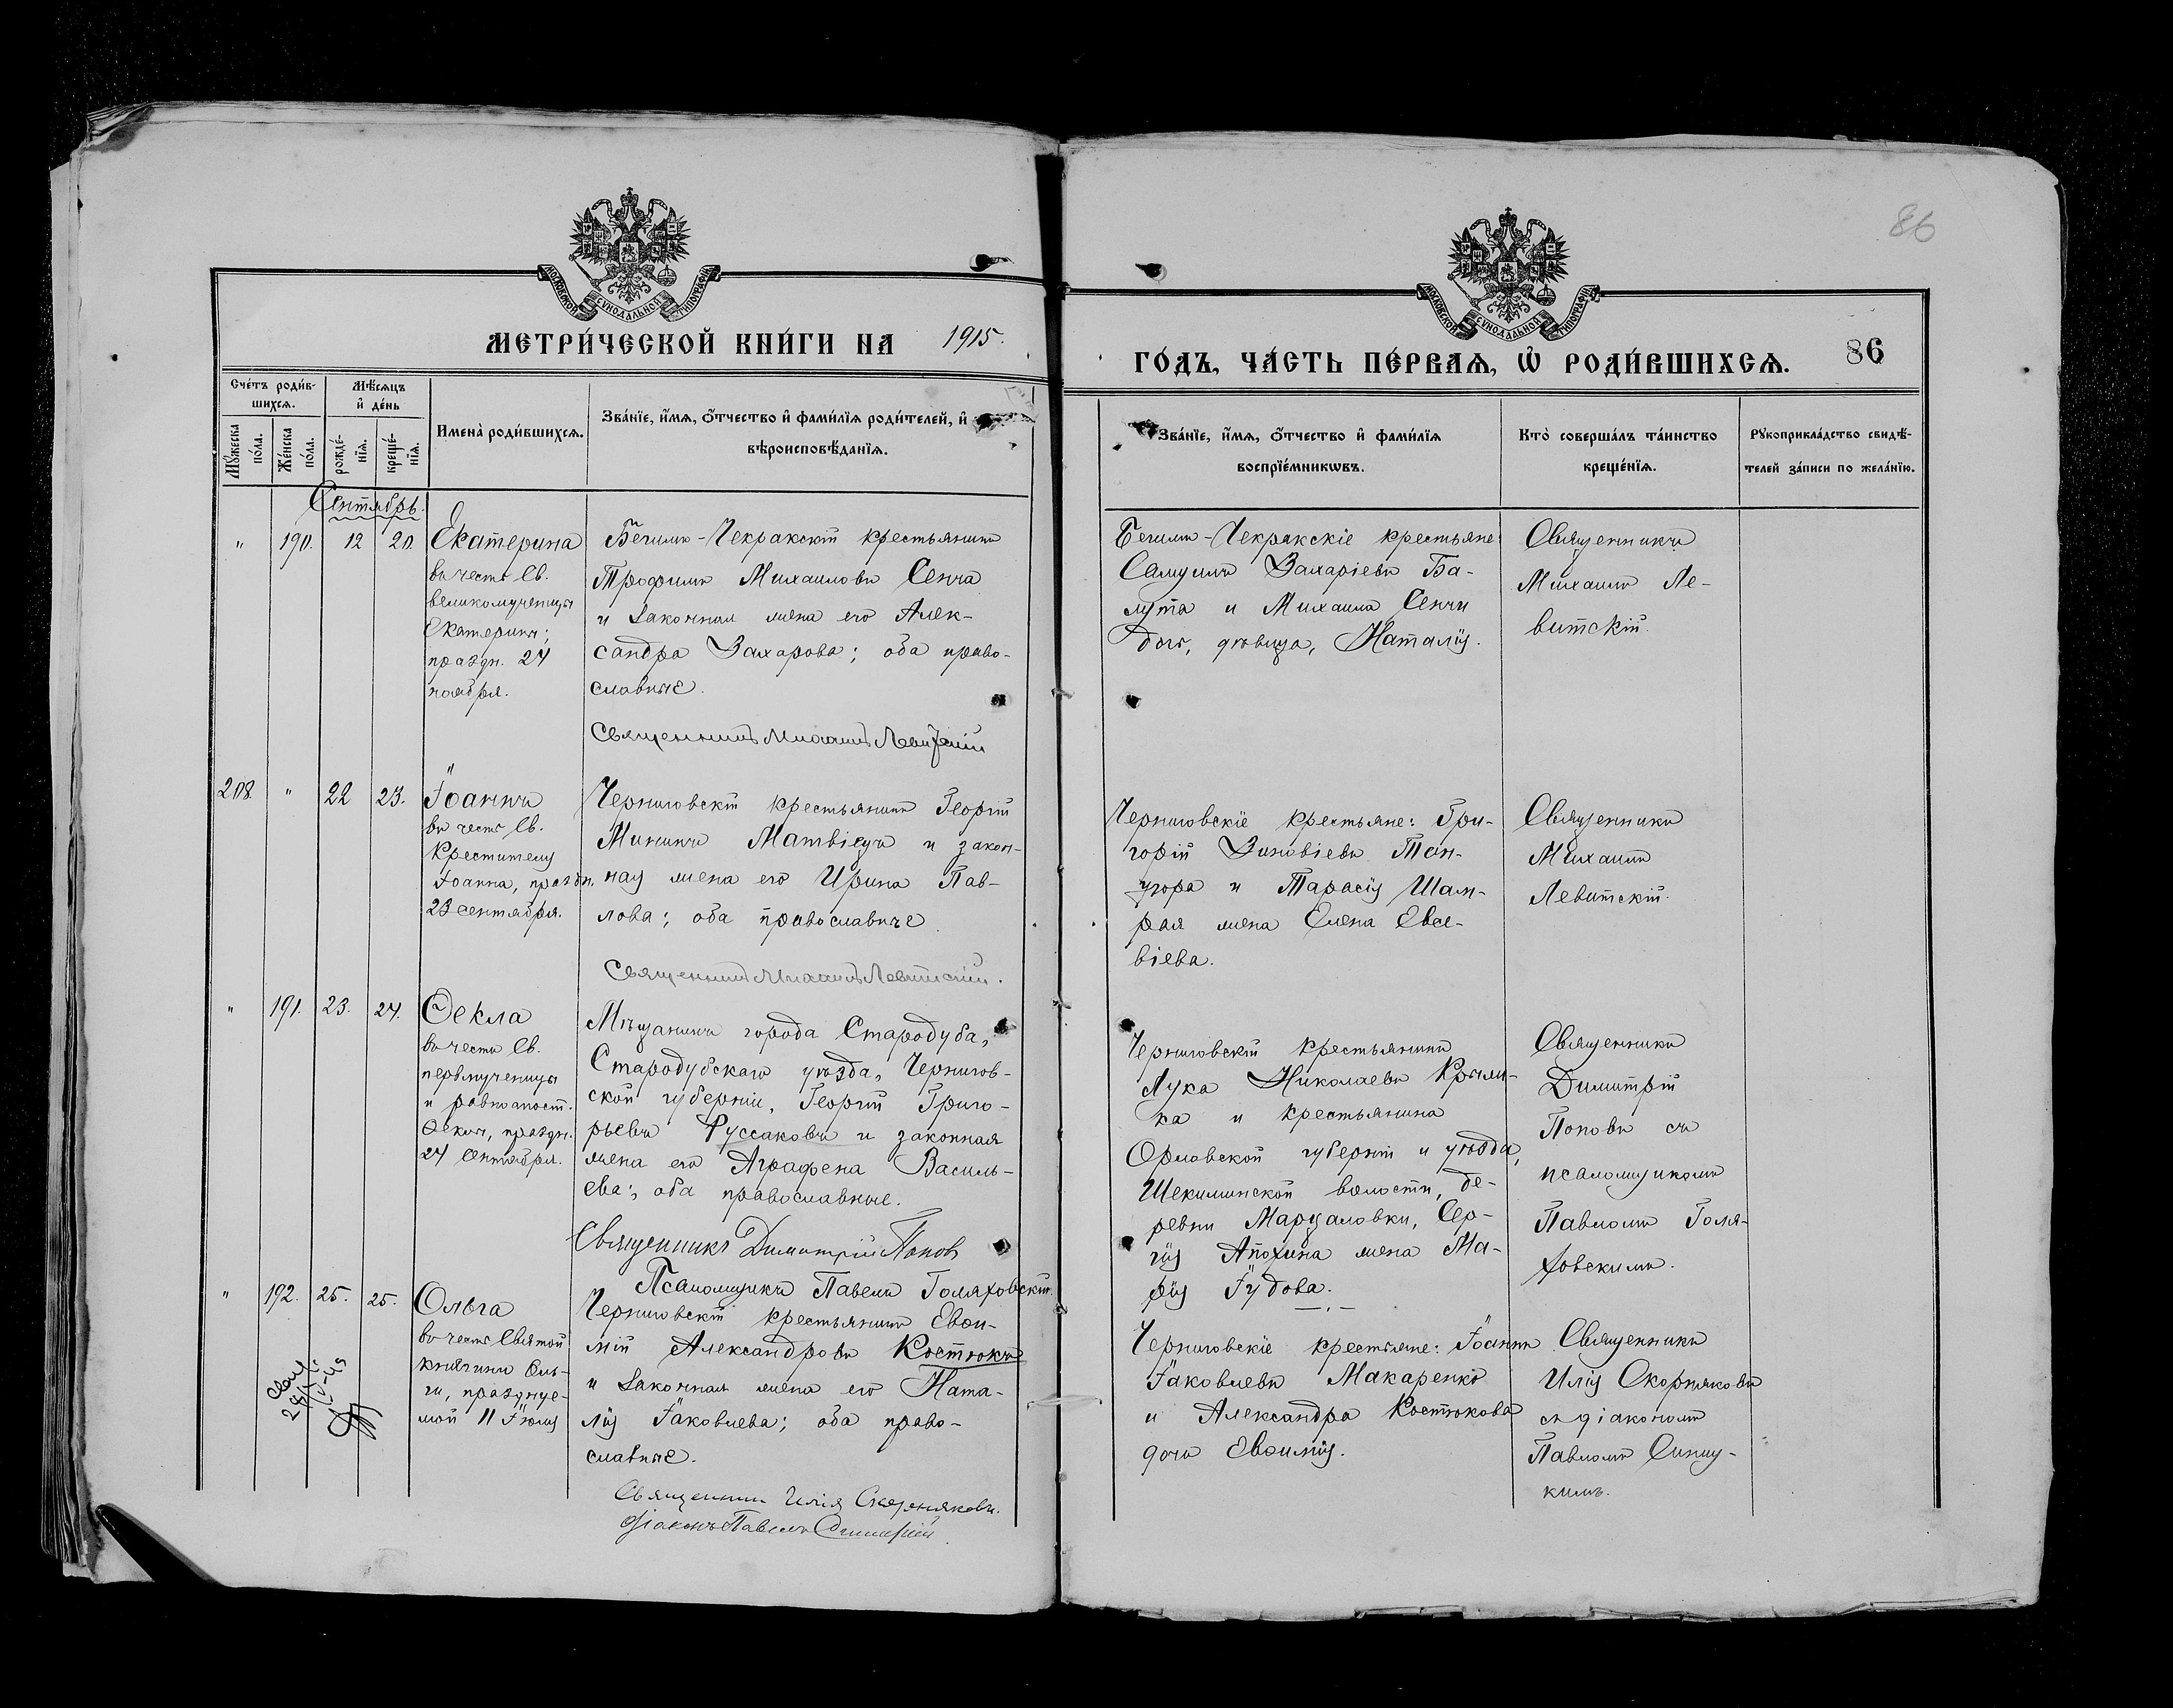 86
МОСКОВСКОЙ СУНОДАЛЬНОЙ ТИПОГРАФІИ
МОСКОВСКОЙ СУНОДАЛЬНОЙ ТИПОГРАФІИ
МЕТРИ́ЧЕСКОЙ КНИ́ГИ НА 1915.
ГО́ДЪ, ЧА́СТЬ ПЕ́РВАѦ, Ѽ РОДИ́ВШИХСѦ. 86
Сче́тъ роди́в-
шихсѧ.
Мѣ́сѧцъ
и҆ де́нь
Мꙋ́жеска
по́ла.
Же́нска
по́ла.
рожде́-
нїѧ.
креще́-
нїѧ.
Имена̀ роди́вшихсѧ.
Зва́нїе, и҆́мѧ, о҆́тчество и҆ фами́лїѧ роди́телей, и҆
вѣроисповѣ́данїѧ.
Зва́нїе, и҆́мѧ, о҆́тчество и҆ фами́лїѧ
воспрїе́мникѡвъ.
Кто̀ соверша́лъ та́инство
креще́нїѧ.
Рꙋкоприкла́дство свидѣ́-
телей за́писи по жела́нїю.
Сентябрь.
" 190. 12 20.
Екатерина
въ честь Св.
великомученицы
Екатерины;
праздн. 24
ноября.
Бегимъ-Чекракскій крестьянинъ
Трофимъ Михаиловъ Сенча
и законная жена его Алек-
сандра Захарова; оба право-
славные.
Священникъ Михаилъ Левитскій
Бегимъ-Чекракскіе крестьяне
Самуилъ Захаріевъ Ба-
лута и Михаила Сенчи
дочь, дѣвица, Наталія.
Священникъ
Михаилъ Ле-
витскій.
208. " 22 23.
Іоаннъ
въ честь Св.
Крестителя
Іоанна, праздн.
23 сентября.
Черниговскій крестьянинъ Георгій
Мининъ Матвіецъ и закон-
ная жена его Ирина Пав-
лова; оба православные.
Священникъ Михаилъ Левитскій.
Черниговскіе крестьяне: Гри-
горій Зиновіевъ
и Тарасія Шам-
рая жена Елена Евсе-
віева.
Священникъ
Михаилъ
Левитскій.
" 191. 23. 24.
Ѳекла
въ честь Св.
первмученицы
и равноапост.
Ѳеклы, праздн.
24 Сентября.
Мѣщанинъ города Стародуба,
Стародубскаго уѣзда, Чернигов-
ской губерніи, Георгій Григо-
рьевъ Руссаковъ и законная
жена его Аграфена Василь-
ева; оба православные.
Священникъ Димитрій Поповъ
Псаломщикъ Павелъ Голяховскій.
Черниговскій крестьянинъ
Лука Николаевъ
и крестьянина
Орловской губерніи и уѣзда,
волости, де-
ревни Марцаловки, Сер-
гія Апохина жена Ма-
рія Іудова.
Священникъ
Димитрій
Поповъ съ
псаломщикомъ
Павломъ Голя-
ховскимъ.
" 192. 25. 25.
Ольга
въ честь Святой
княгини Оль-
ги, празднуе-
мой 11 Іюля
Черниговскій крестьянинъ Евѳи-
мій Александровъ Костюкъ
и законная жена его Ната-
лія Іаковлева; оба право-
славные.
Священникъ Илія Скорняковъ.
Діаконъ Павелъ
Черниговскіе крестьяне: Іоаннъ
Іаковлевъ Макаренко
и Александра Костюкова
дочь Евѳимія.
Священникъ
Илія Скорняковъ
съ діакономъ
Павломъ